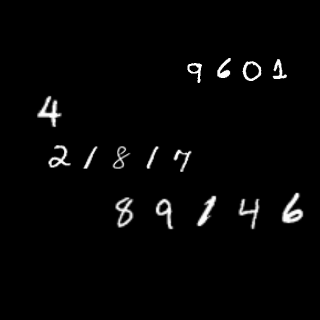 9601
4
21817
89146